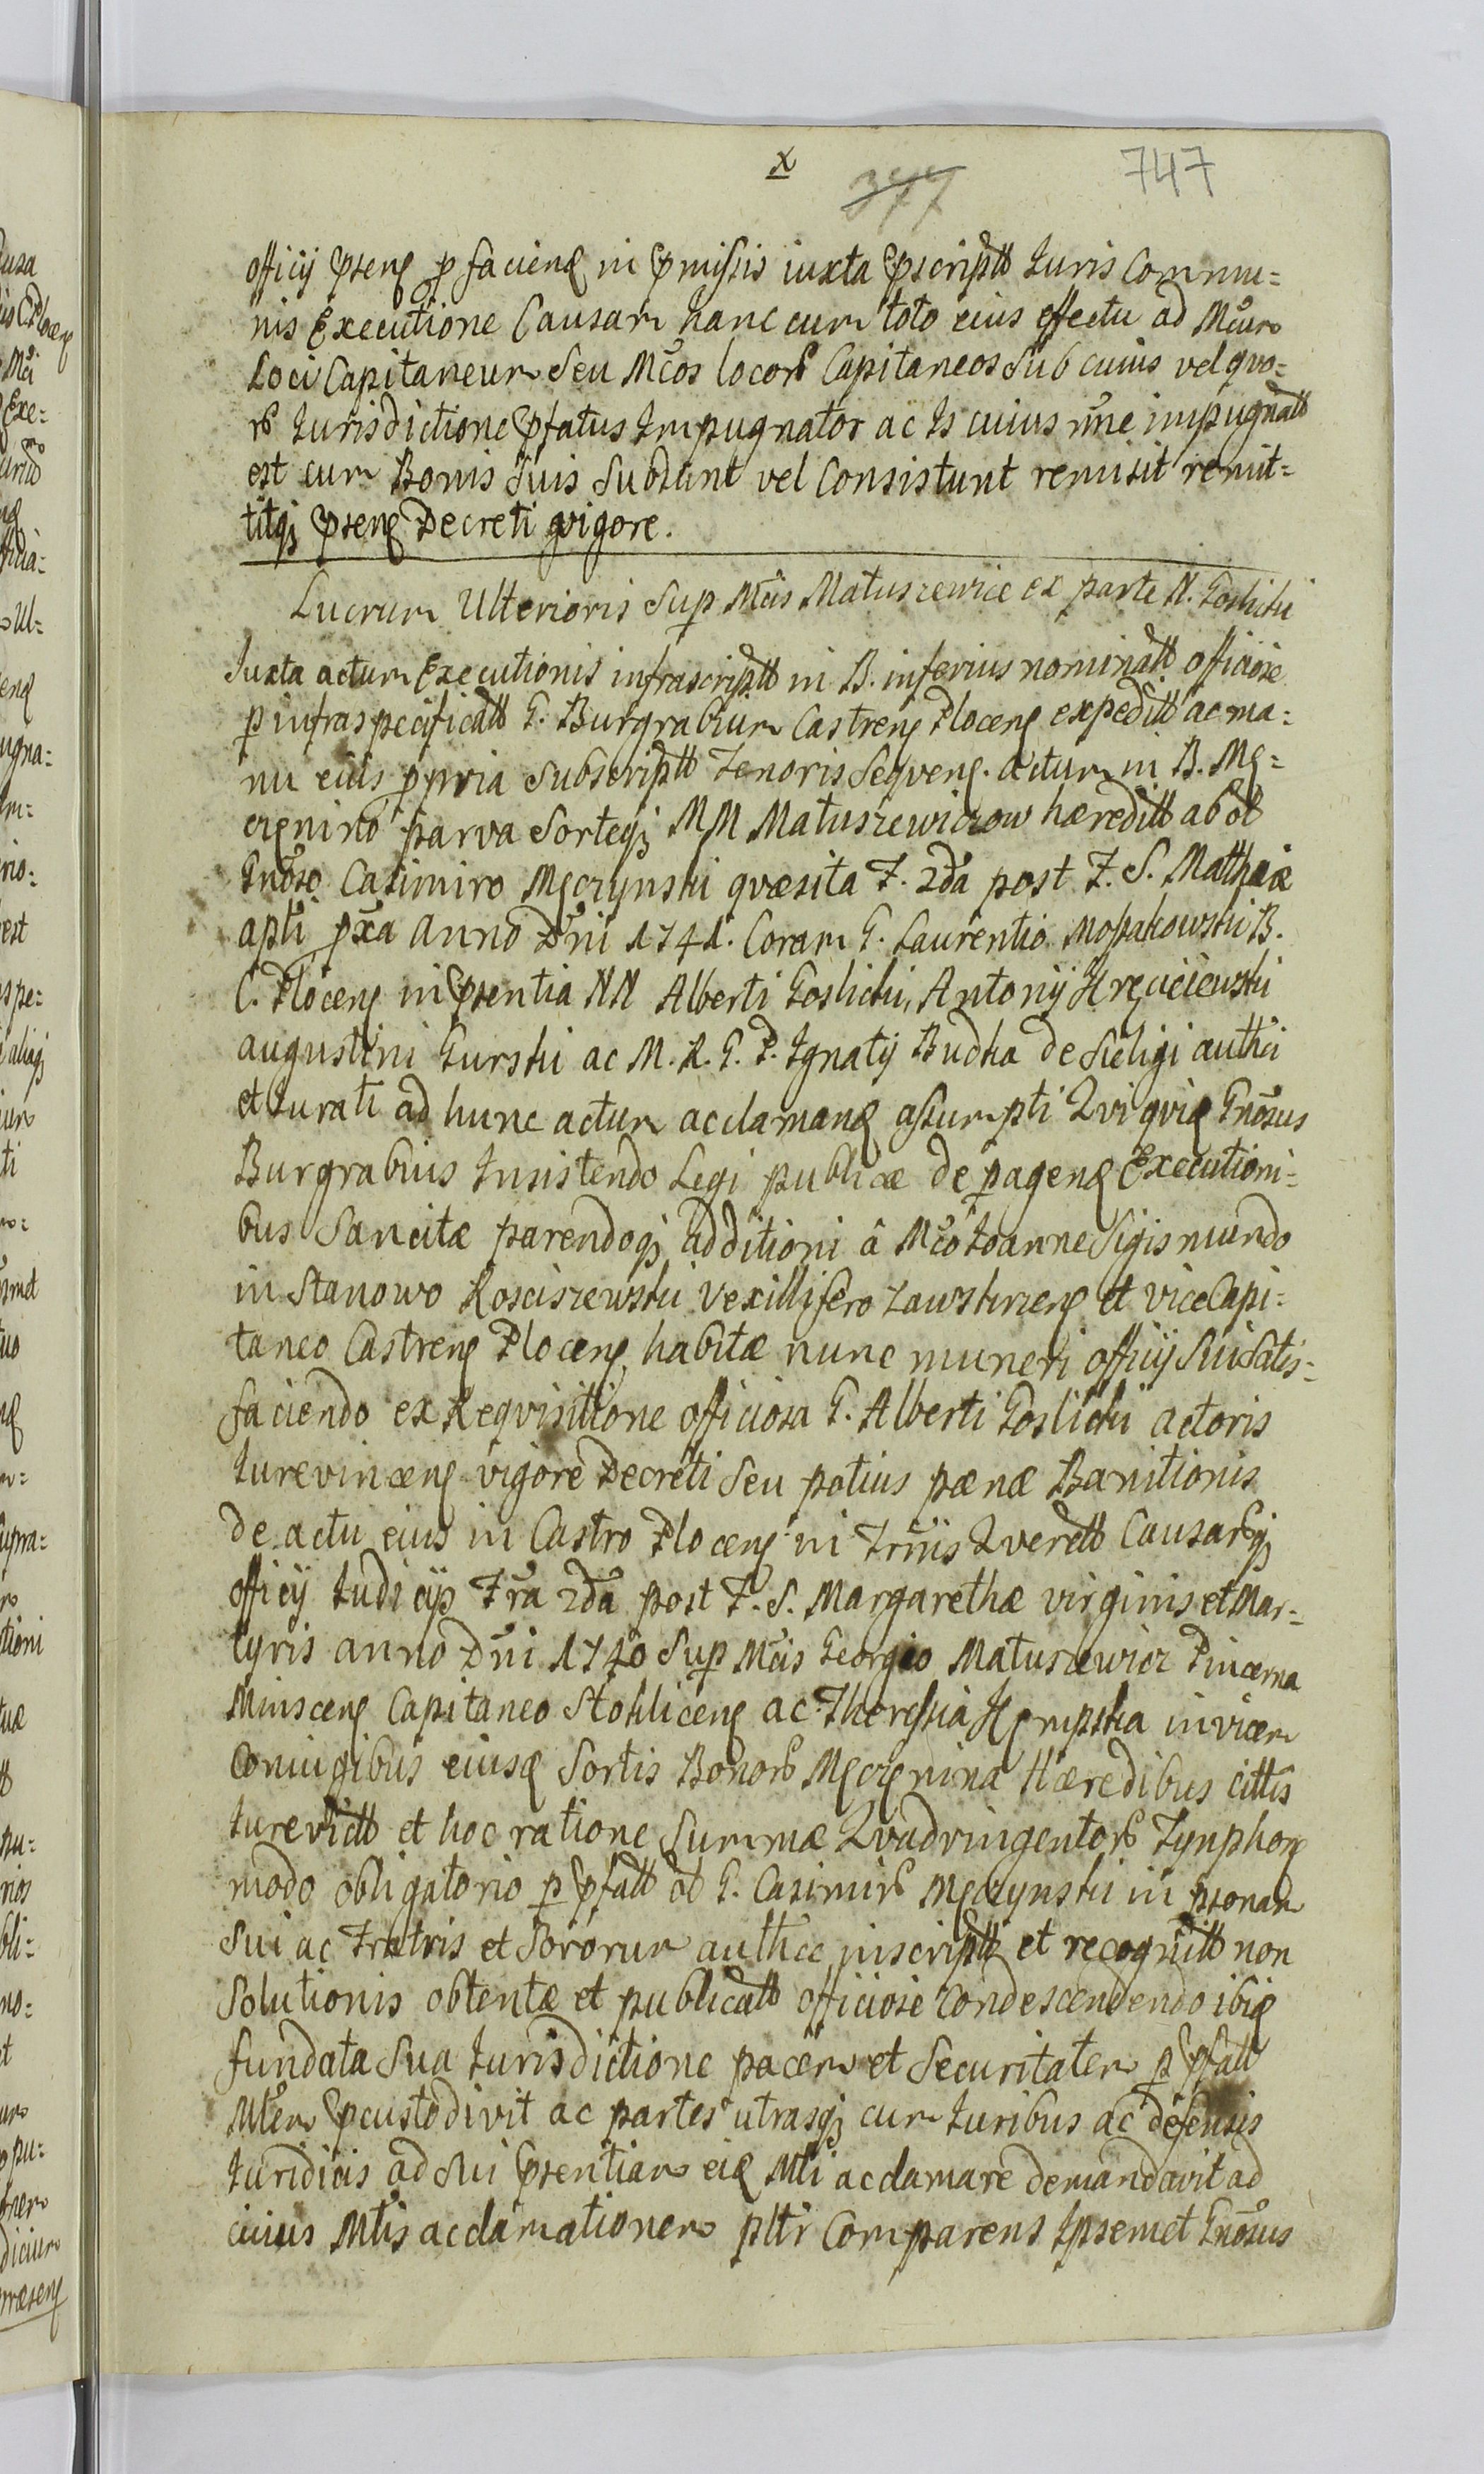 x
377
747
officij pseng p facieng in pmissis iuxta pscriptt Iuris Commu=
nis Executione Causam hanc cum toto eius effectu ad Mcum
Loci Capitaneum Seu Mcos locorb Capitaneos Sub cuius vel quo=
rb Iurisdictione pfatus Impugnator ac Is cuius nne impugnatt
est cum Bonis Suis Subsunt vel Consistunt remisit remit=
titqz pseng Decreti vigore.
Lucrum Ulterioris Sup Mcis Matuszewice ex parte N. Goslicki
Iuxta actum Executionis infrascriptt in B. inferius nominatt officiose
p infraspecificatt G. Burgrabium Castreng Ploceng expeditt ac ma=
nu eius ppria Subscriptt Tenoris Seqveng. actum in B. Mę=
czenino parva Sorteqz MM Matuszewiczow hæreditt ab ol
Gnoso Casimiro Męczynski qvæsita F. 2da post F. S. Matthaiæ
apti pxa Anno Dni 1741. Coram G. Laurentio Mopakowski B.
C. Ploceng in psentia NN Alberti Goslicki, Antonij
augustini Gurski ac M. R. G. P. Ignatij Budka de Seligi authci
et Iurati ad hunc actum acclamang assumpti Qui qvid Gnosus
Burgrabius Insistendo Legi publicæ de pageng Executioni=
bus Sancitæ parendoqz additioni â Mco Ioanne Sigismundo
in Stanowo Rosciszewski Vexillifero Zawskrzeng et vice Capi=
taneo Castreng Ploceng habitæ nunc muneri officij Sui Satis=
faciendo ex Reqvisitione officiosa G. Alberti Goslicki actoris
Iurevinceng vigore Decreti Seu potius pænæ Banitionis
de actu eius in Castro Ploceng in Trnis Qverett Causarbqz
officij Iudicijs Fra 2da post F. S. Margarethæ virginis et Mar=
tyris anno Dni 1740 Sup Mcis Georgio Matuszewicz Pincerna
Minsceng Capitaneo Stokliceng ac Theressia Kempska invicem
Coniugibus eiusq Sortis Bonorb Męczenina Hæredibus cittis
Iurevictt et hoc ratione Summæ Qvadringentorb Tynphong
modo obligatorio p pfatt ol G. Casimirb Męczynski in psonam
Sui ac Fratris et Sororum authce inscriptt et recognitt non
Solutionis obtentæ et publicatt officiose Condescendendo ibiq
fundata Sua Iurisdictione pacem et Securitatem p pfatt
Mlem pcustodivit ac partes utrasqz cum Iuribus ac defensis
Iuridicis ad Sui psentiam eiq Mli acclamare demandavit ad
cuius Mlis acclamationem plti Comparens Ipsemet Gnosus